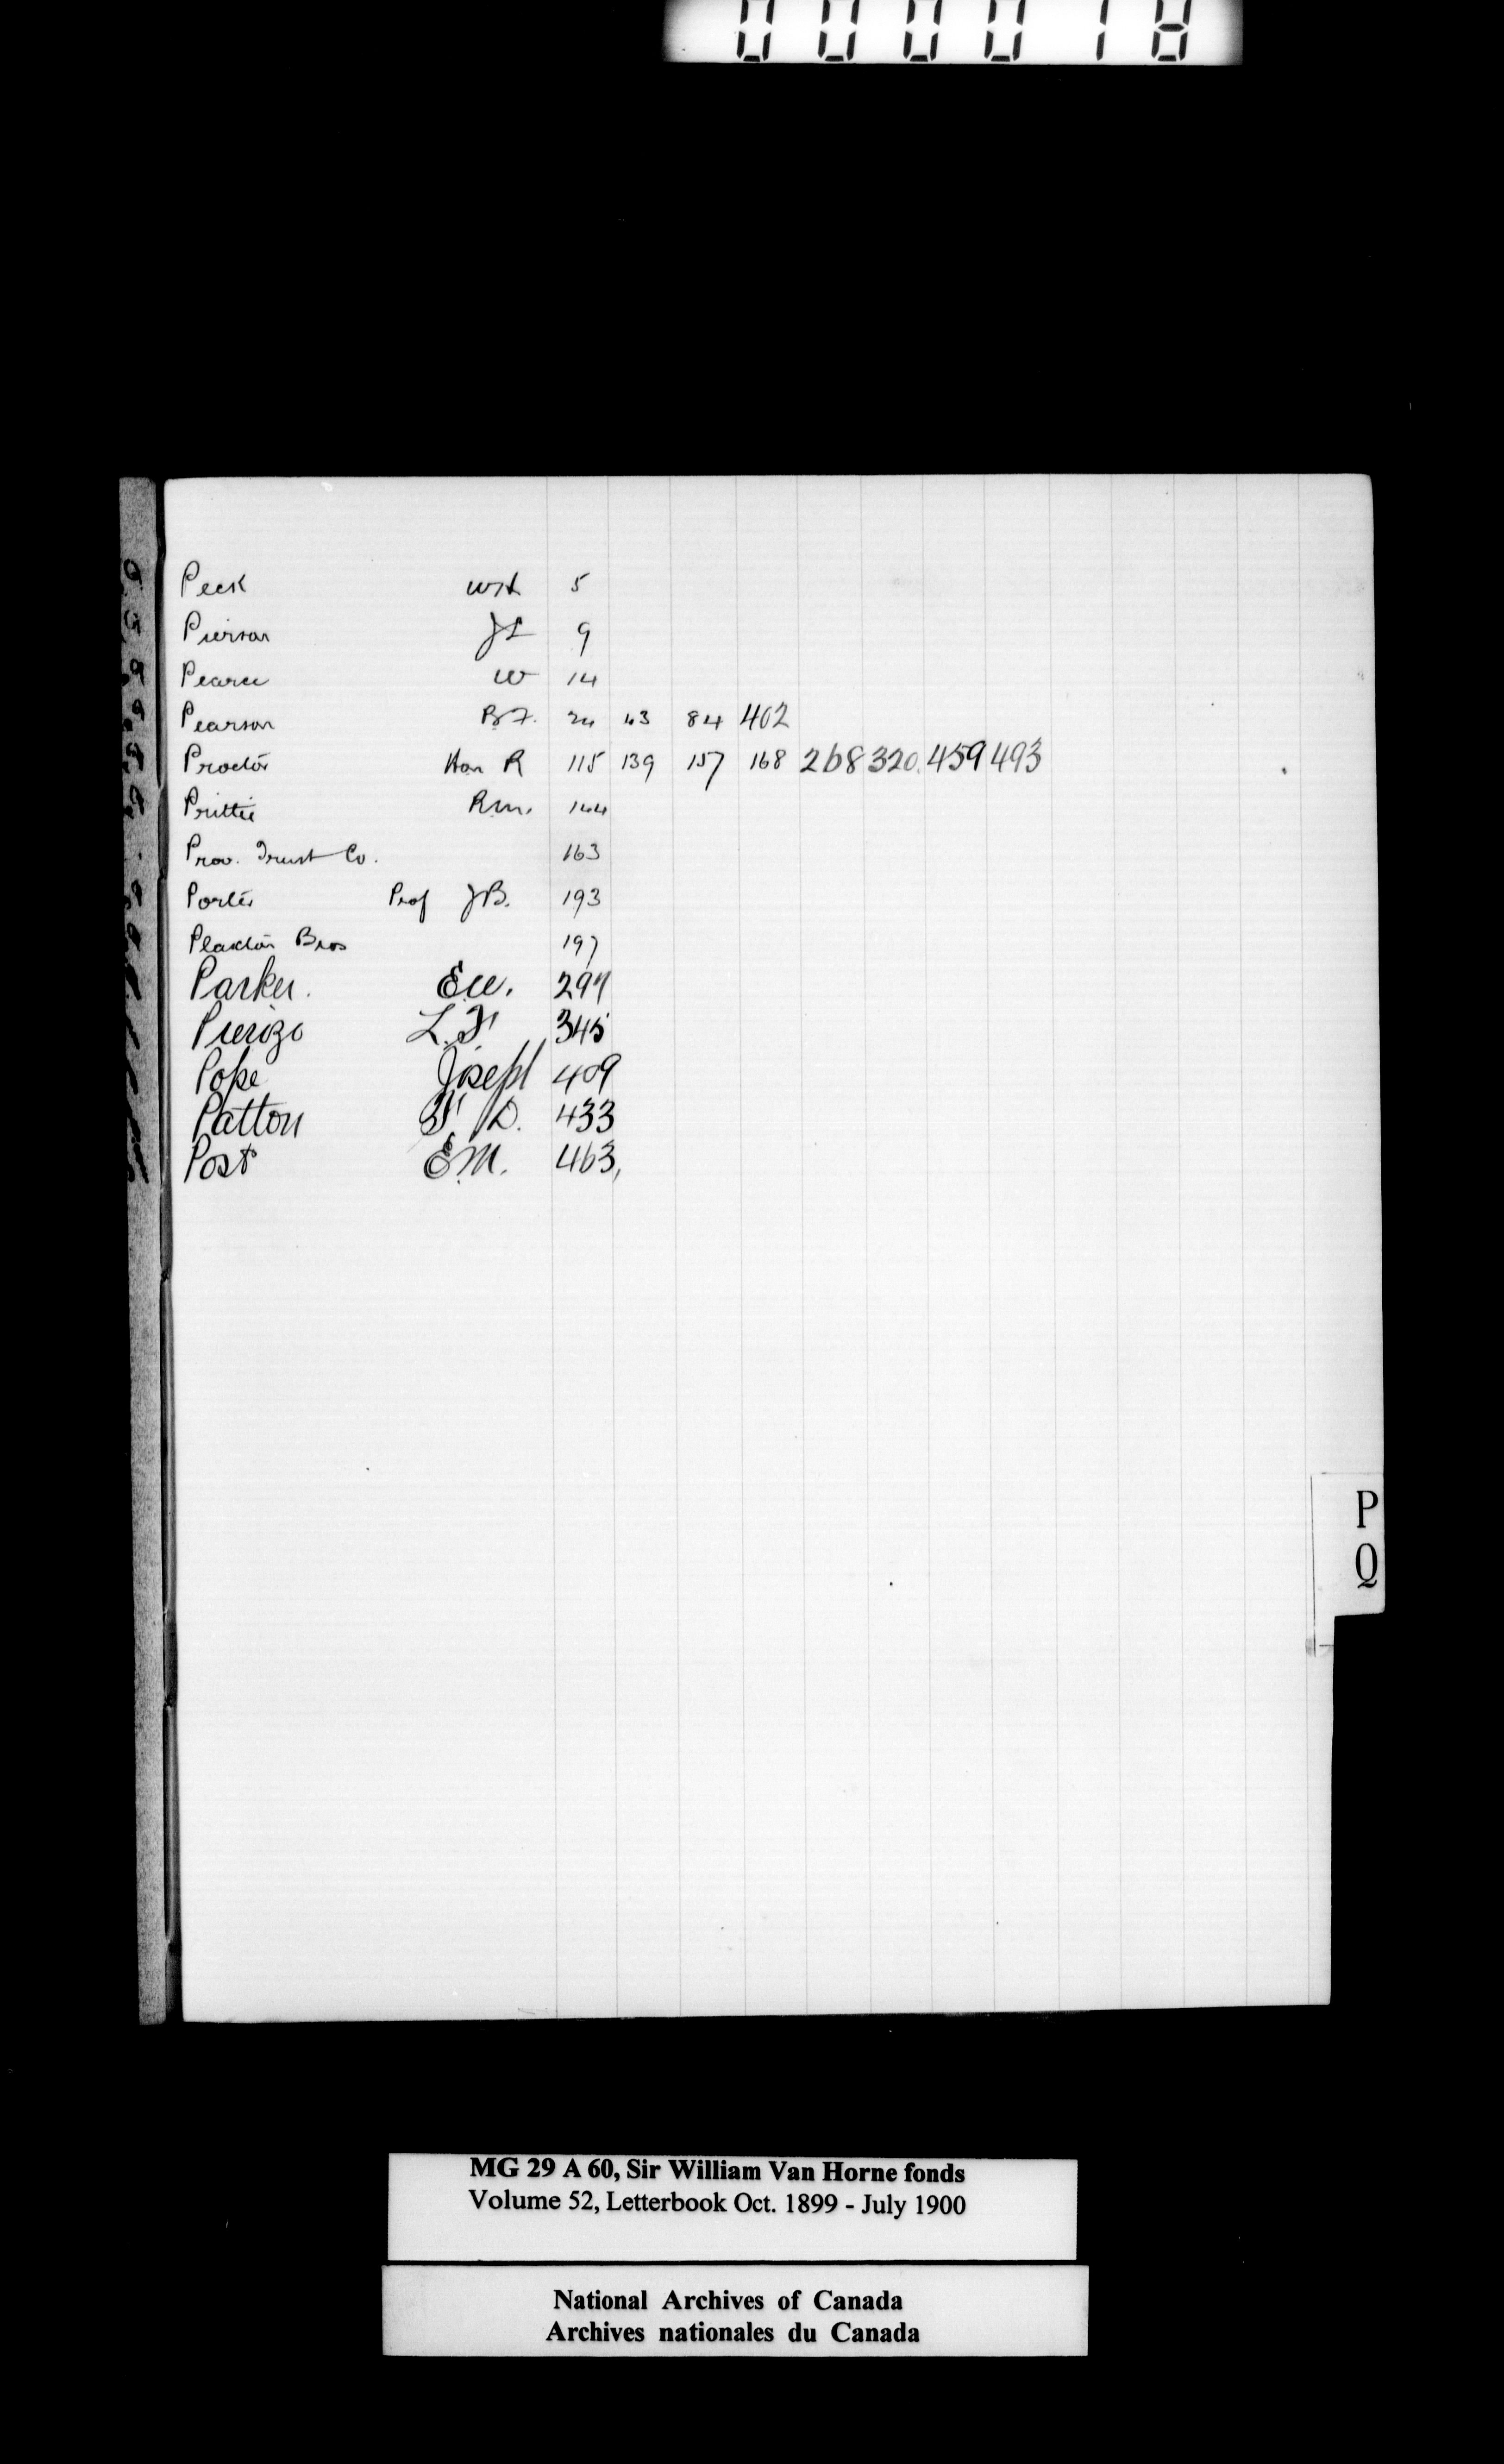 000018
Peck WH 5
Pierson JL 9
Pearce W 14
Pearson B.F. 24 43 84 402
Proctor Hon R 115 139 157 168 268 320. 459 493
Prittie R.M. 144
Prov. Trust Co. 163
Porter Prof JB. 193
Plaxton Bros 197
Parker. E.W. 297
L.F. 345
Pope Joseph 409
Patton F. D. 433
Post E.M. 463,
P
Q
MG 29 A 60, Sir William Van Horne fonds
Volume 52, Letterbook Oct. 1899 - July 1900
National Archives of Canada
Archives nationales du Canada